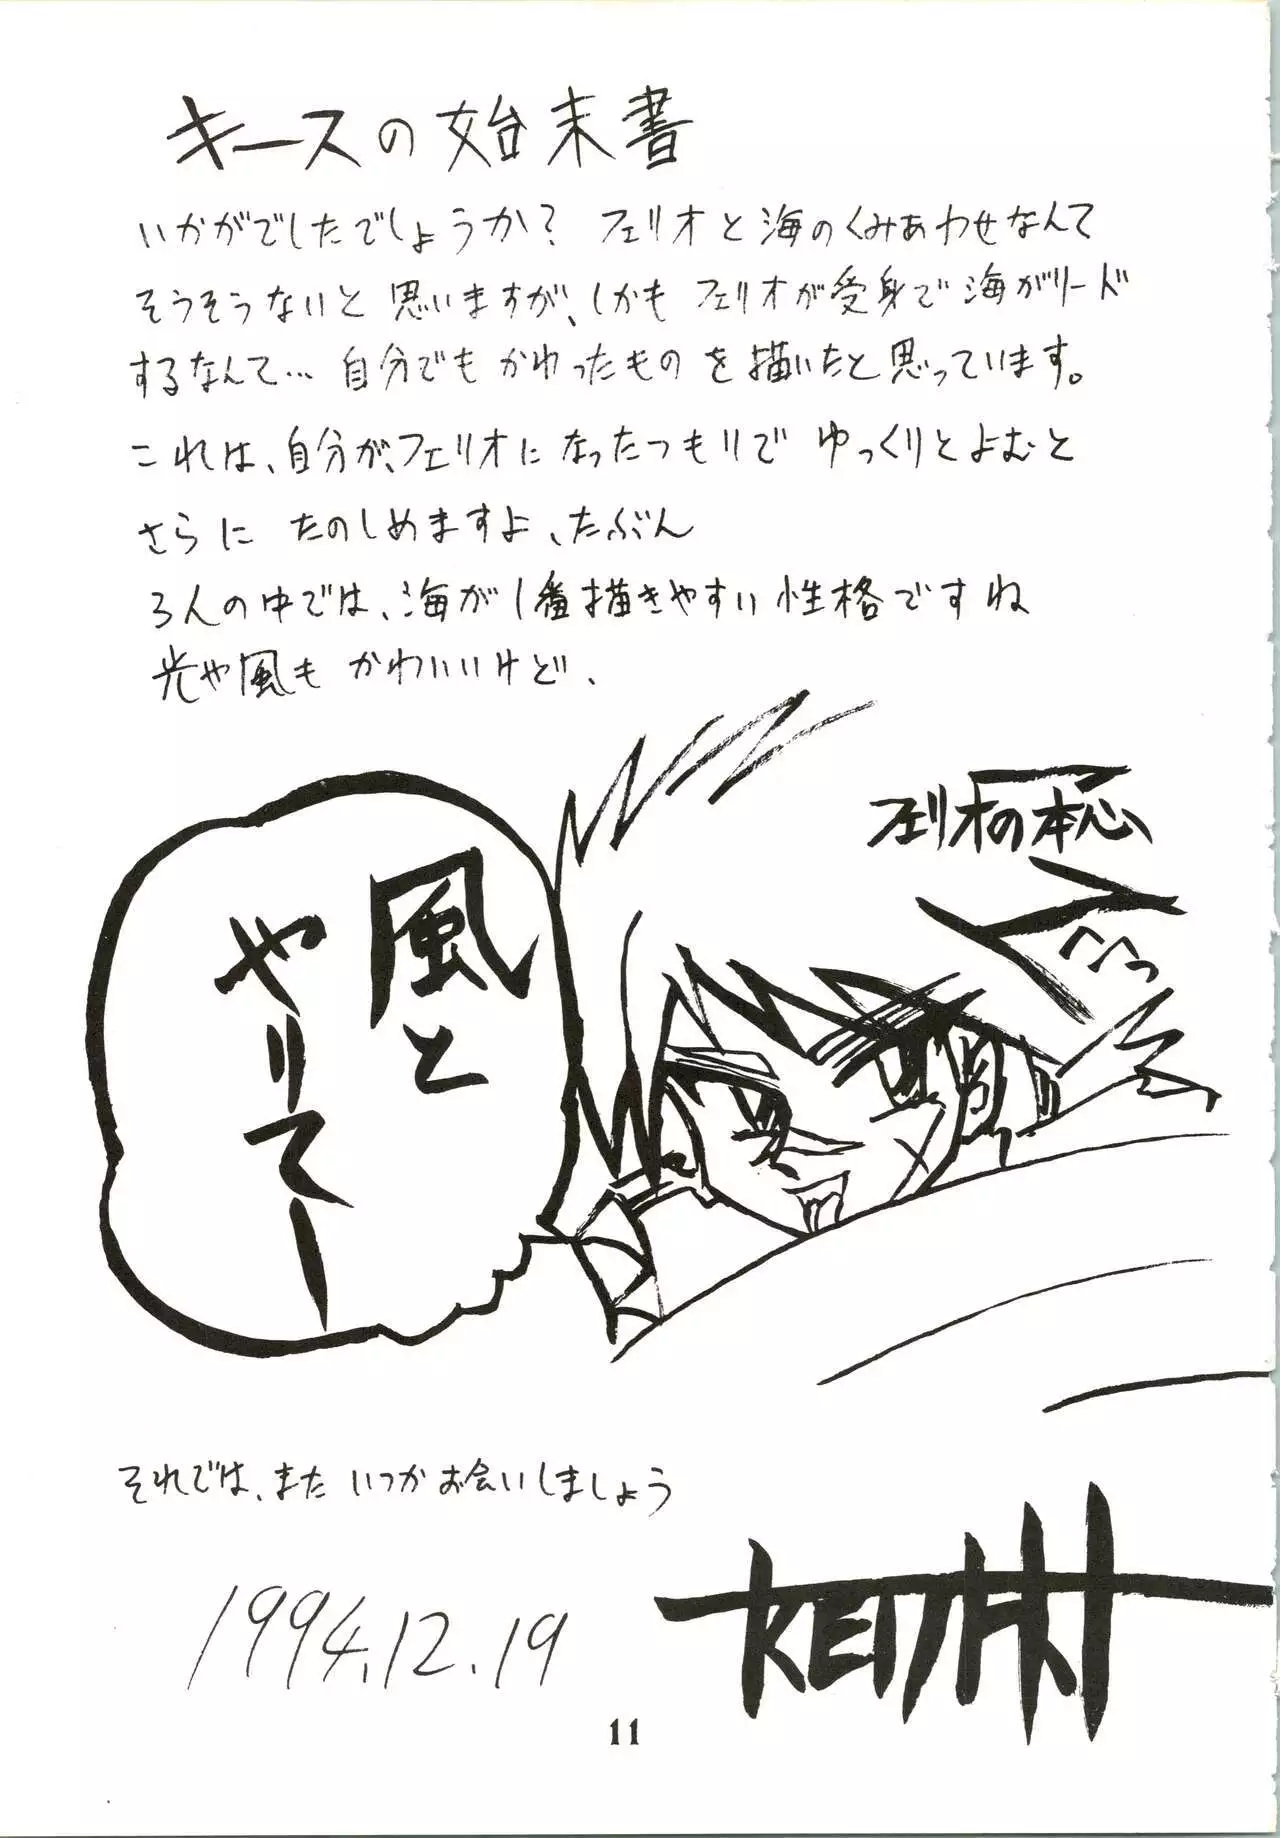 キースの始末書
いかがでしたでしょうか？ フェリオと海のくみあわせなんて
そうそうないと思いますが、しかもフェリオが受身で海がリード
するなんて… 自分でもかわったものを描いたと思っています。
これは、自分が、フェリオになったつもりでゆっくりとよむと
さらにたのしめますよ、たぶん
3人の中では、海が1番描きやすい性格ですね
光や風もかわいいけど、
フェリオの本心
風と
やりてー
それでは、またいつかお会いしましょう
1994.12.19
11